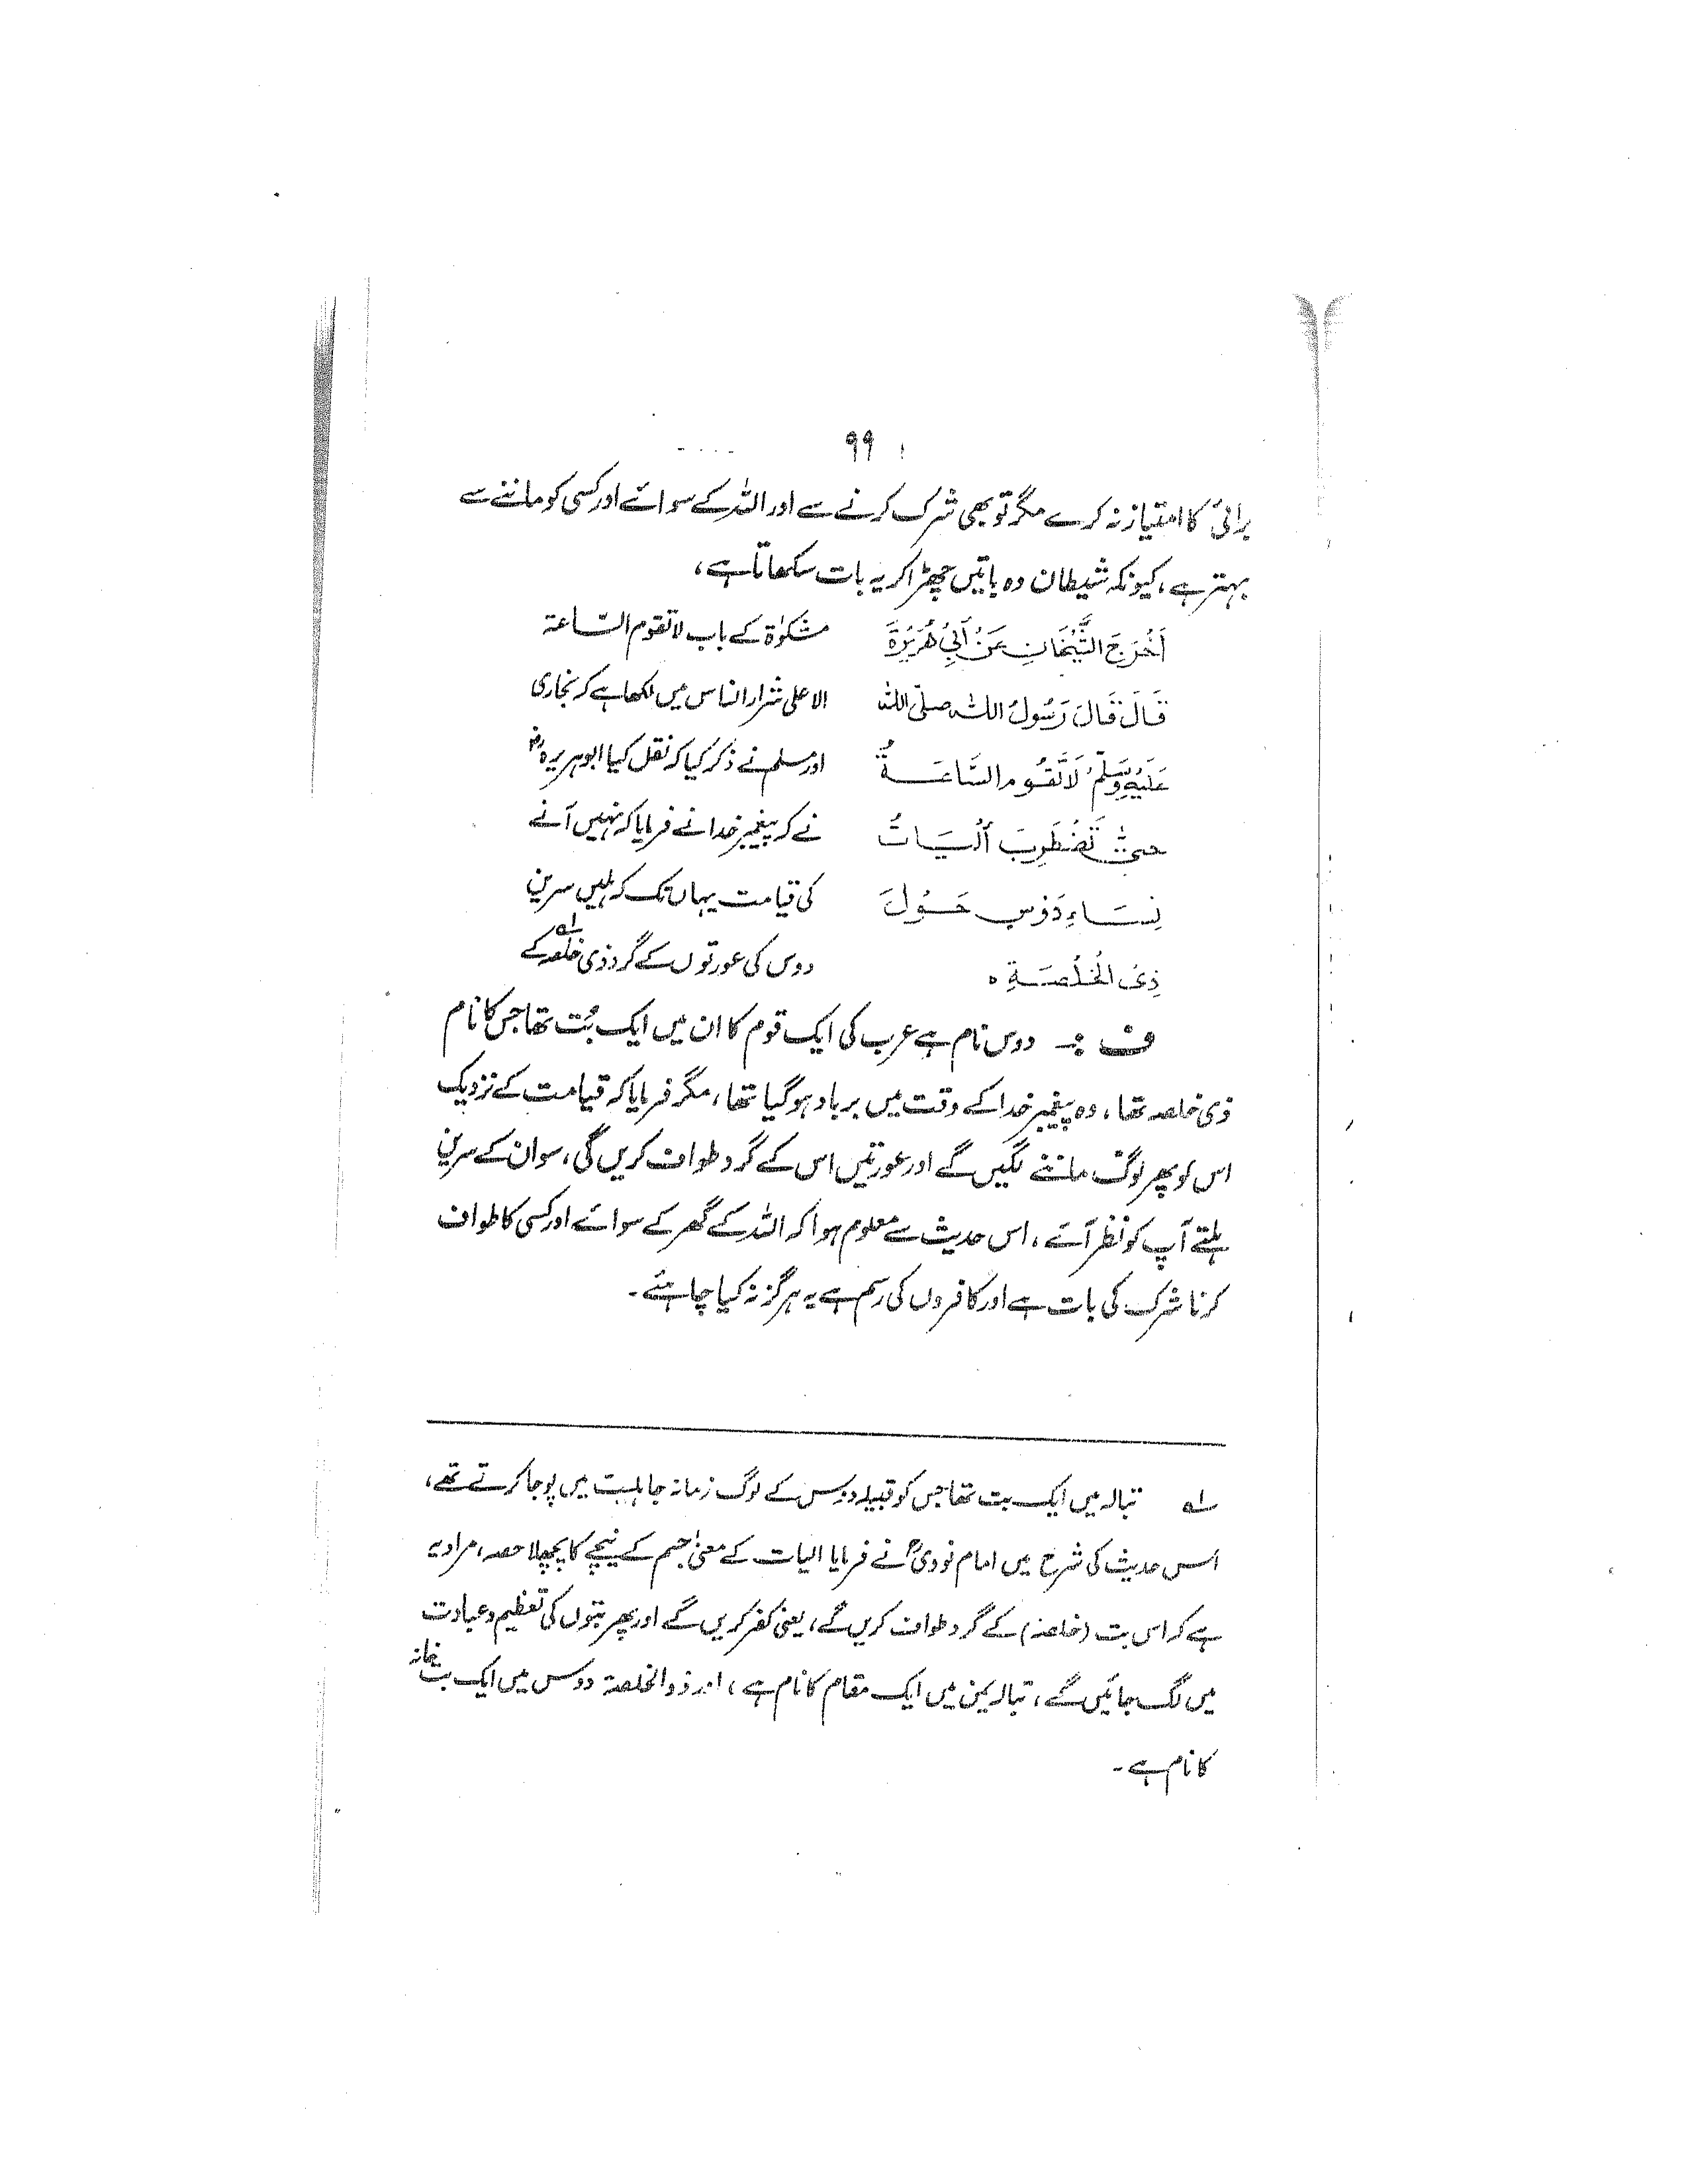 ۹۹
برائی کا امتیاز نہ کرے مگر تو بھی شرک کرنے سے اور اللہ کے سوائے اور کسی کو ماننے سے
بہتر ہے، کیونکہ شیطان وہ باتیں چھڑا کر یہ بات سکھاتا ہے،
اَخْرَجَ الشَّيْخَانِ عَنْ اَبِيْ هُرَيْرَةَ
قَالَ قَالَ رَسُوْلُ اللہ صلّی اللہ
عَلَيْهِ وَسَلَّمْ لَا تَقُوْمُ السَّاعَةُ
حتّٰى تَضْطَرِبَ اَلْيَاتُ
نِسَاءِ دَوْسٍ حَوْلَ
ذِی الْخَلْصَةِ ہ
مشکوٰۃ کے باب لا تقوم السّاعۃ
الا علی شرار الناس میں لکھا ہے کہ بخاری
اور مسلم نے ذکر کیا کہ نقل کیا ابو ہریرہؓ
نے کہ پیغمبر خدا نے فرمایا کہ نہیں آنے
کی قیامت یہاں تک کہ ہلیں سرین
دوس کی عورتوں کے گرد ذی خلصہ کے ؎۱
ف :۔ دوس نام ہے عرب کی ایک قوم کا ان میں ایک بُت تھا جس کا نام
ذی خلصہ تھا، وہ پیغمبر خدا کے وقت میں برباد ہو گیا تھا، مگر فرمایا کہ قیامت کے نزدیک
اس کو پھر لوگ ماننے لگیں گے اور عورتیں اس کے گرد طواف کریں گی، سو ان کے سرین
ہلتے آپ کو نظر آئے، اس حدیث سے معلوم ہوا کہ اللہ کے گھر کے سوائے اور کسی کا طواف
کرنا شرک کی بات ہے اور کافروں کی رسم ہے یہ ہرگز نہ کیا چاہئے۔
؎۱ تبالہ میں ایک بت تھا جس کو قبیلہ دوس کے لوگ زمانہ جاہلیت میں پوجا کرتے تھے،
اس حدیث کی شرح میں امام نوویؒ نے فرمایا الیات کے معنیٰ جسم کے نیچے کا پچھلا حصہ، مراد یہ
ہے کہ اس بت (خلصہ) کے گرد طواف کریں گے، یعنی کفر کریں گے اور پھر بتوں کی تعظیم و عبادت
میں لگ جائیں گے، تبالہ یمن میں ایک مقام کا نام ہے، اور ذوالخلصۃ دوس میں ایک بت خانہ
کا نام ہے۔